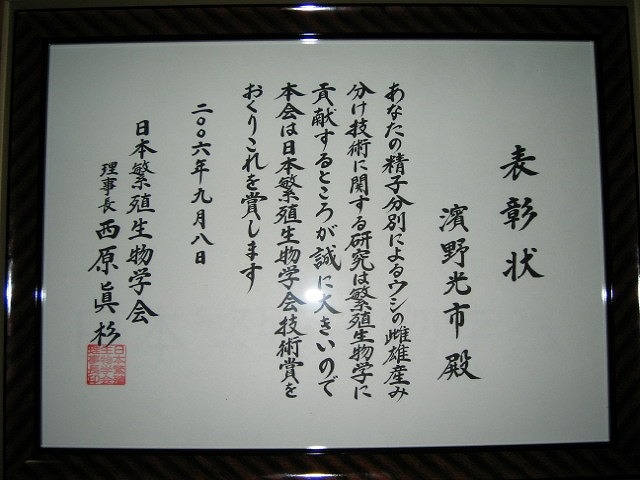 表彰状
濱野光市殿
あなたの精子分別によるウシの雌雄産み
分け技術に関する研究は繁殖生物学に
貢献するところが誠に大きいので
本会は日本繁殖生物学会技術賞を
おくりこれを賞します
二〇〇六年九月八日
日本繁殖生物学会
理事長 西原眞杉
日本繁殖
生物学会
理事長印